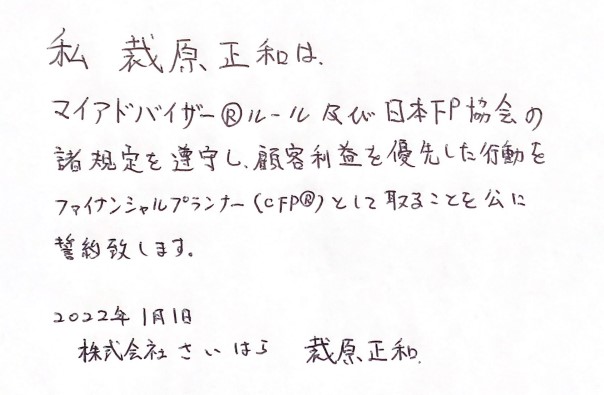 私 裁原正和は、
マイアドバイザー®ルール 及び 日本FP協会の
諸規定を遵守し、顧客利益を優先した行動を
ファイナンシャルプランナー(CFP®)として取ることを公に
誓約致します。
2022年1月1日
株式会社さいはら 裁原正和